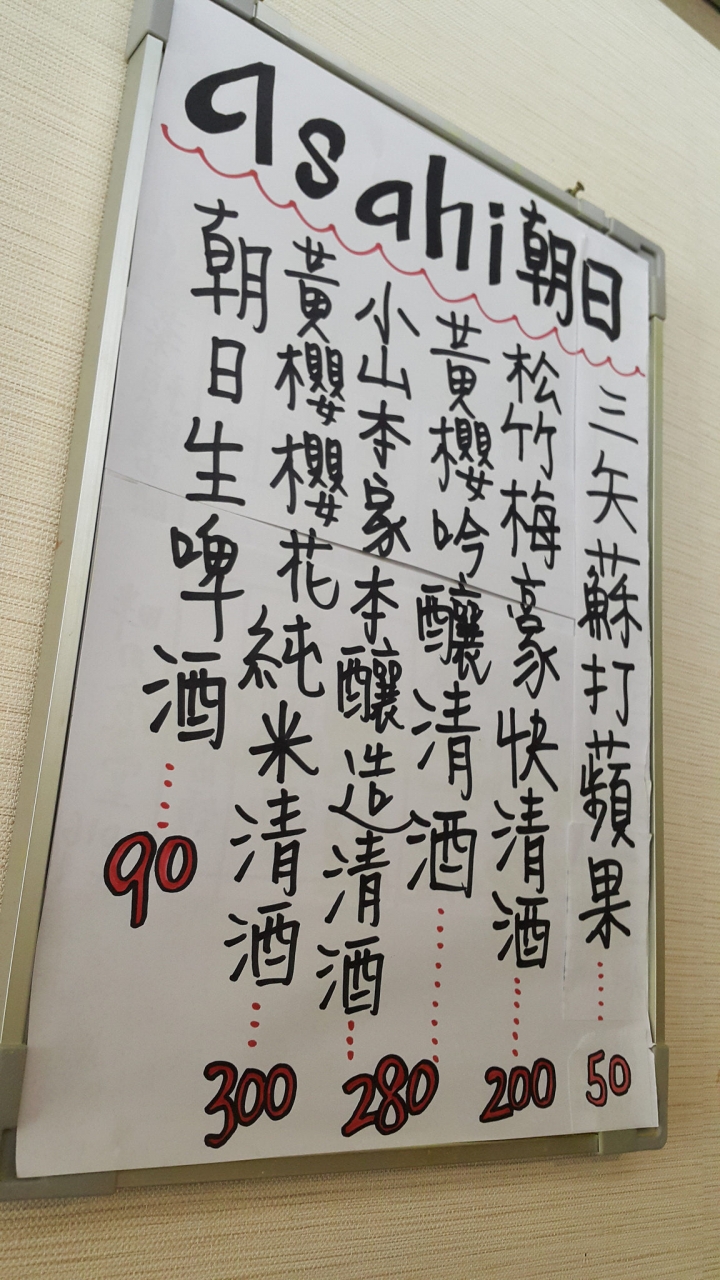 asahi朝日
三矢蘇打蘋果
50
松竹梅豪快清酒
200
黃櫻吟釀清酒
小山本家本釀造清酒
280
黃櫻櫻花純米清酒
300
朝日生啤酒
90